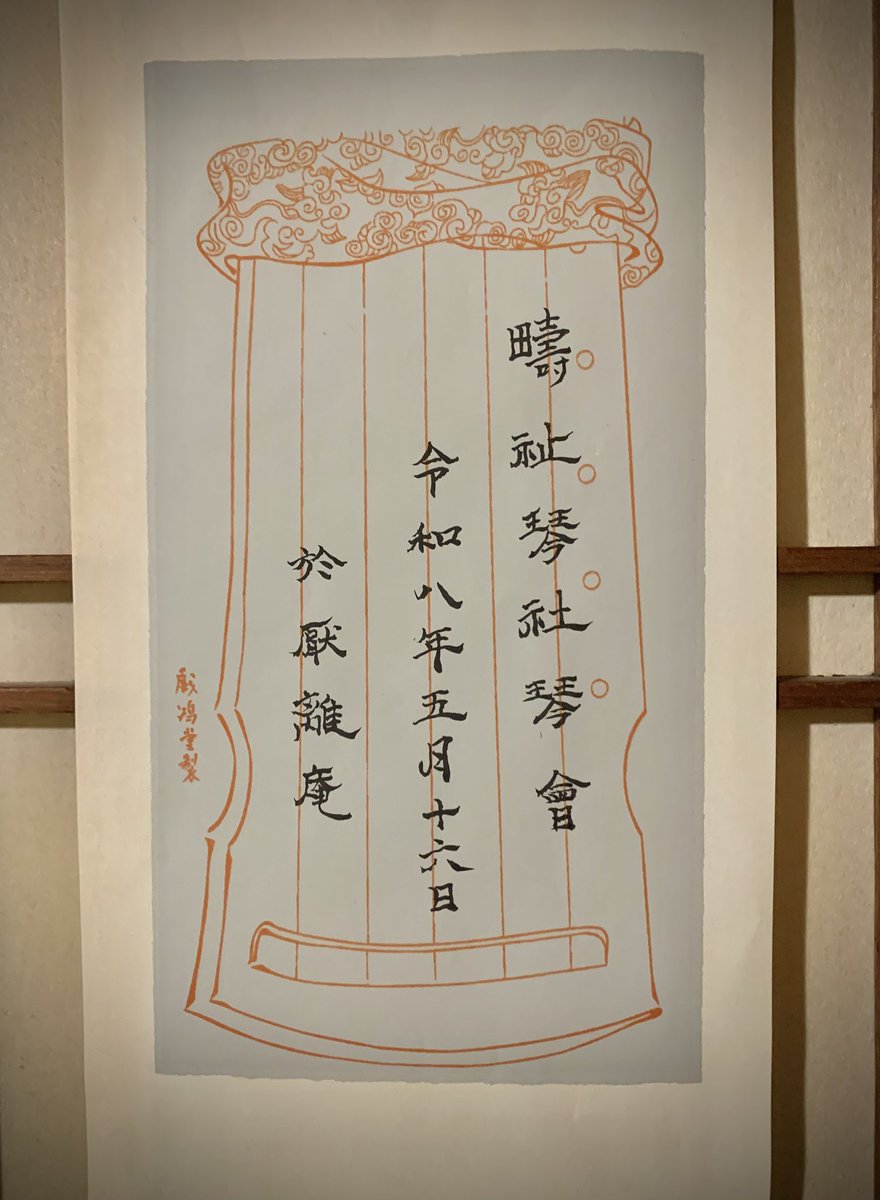 疇祉琴社琴會
令和八年五月十六日
於厭離庵
戲鴻堂製